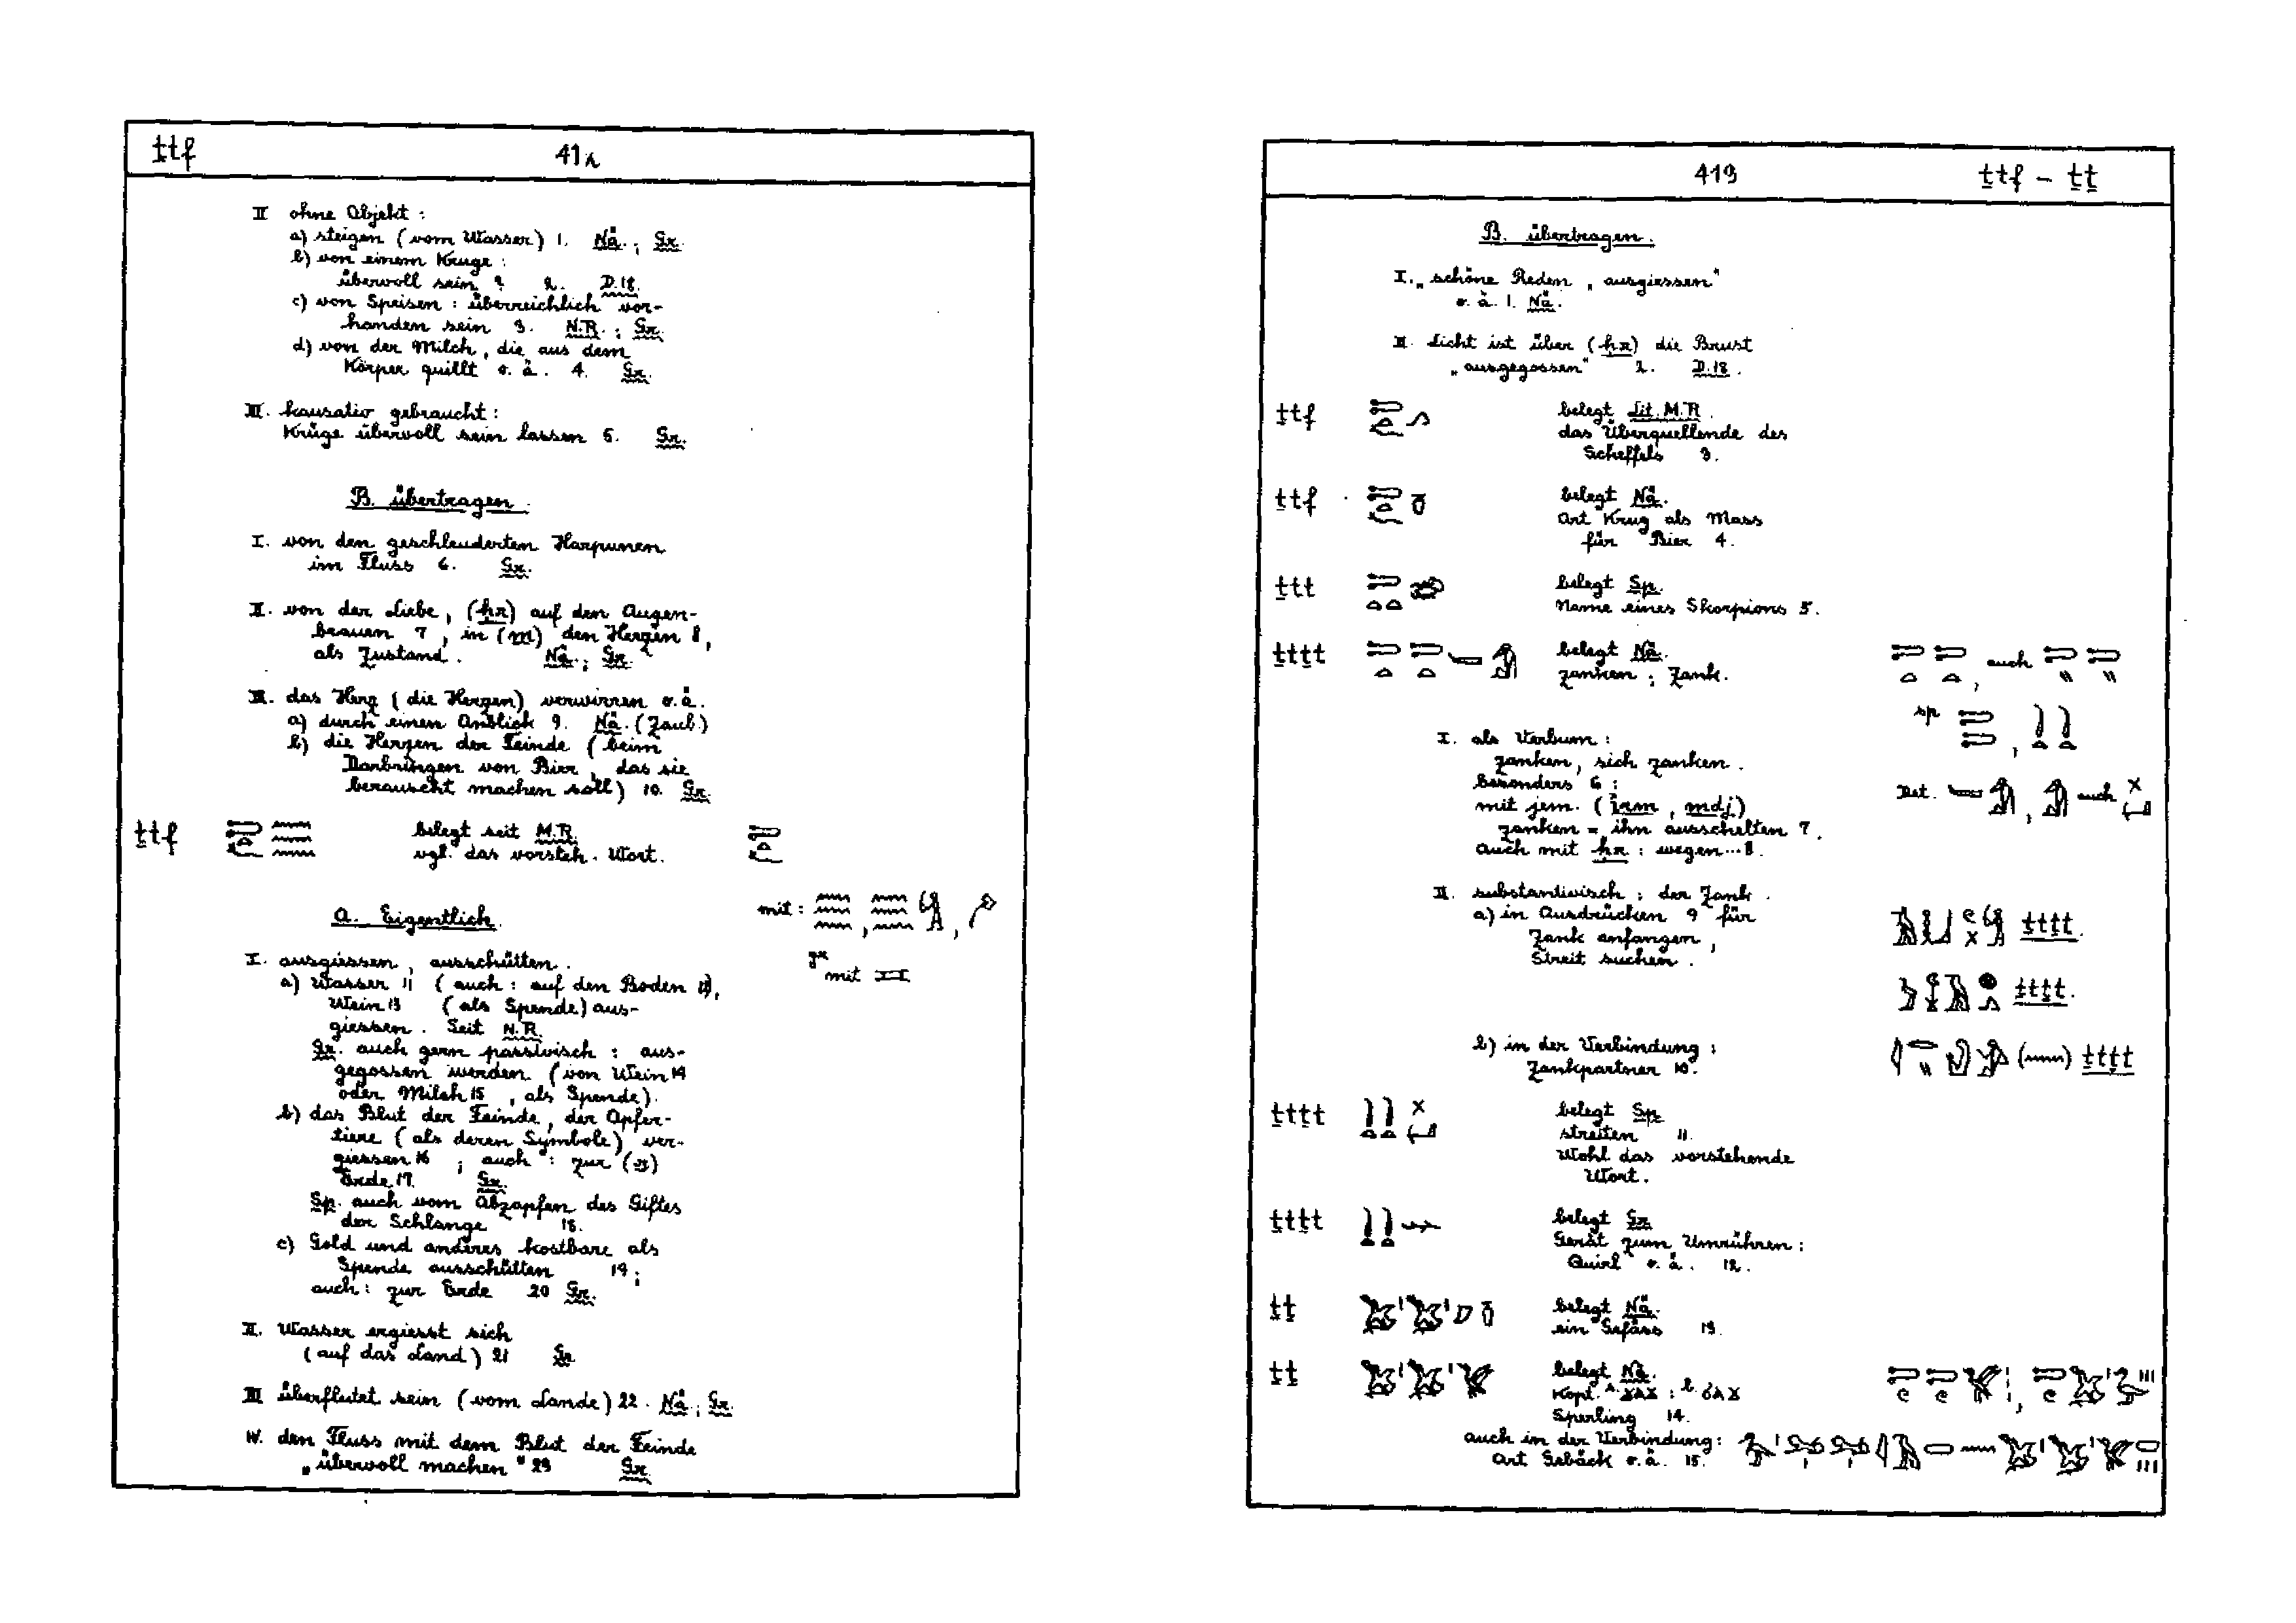 ṯtf
II ohne Objekt :
a) steigen (vom Wasser) 1. Nä. ; Gr.
b) von einem Kruge :
übervoll sein ? 2. D.18.
c) von Speisen : überreichlich vor-
handen sein 3. N.R. ; Gr.
d) von der Milch, die aus dem
Körper quillt o. ä. 4. Gr.
III. kausativ gebraucht :
Krüge übervoll sein lassen 5. Gr.
B. übertragen.
I. von den geschleuderten Harpunen
im Fluss 6. Gr.
II. von der Liebe, (ḥr) auf den Augen-
brauen 7, in (m) den Herzen 8,
als Zustand. Nä. ; Gr.
III. das Herz (die Herzen) verwirren o. ä.
a) durch einen Anblick 9. Nä. (Zaub.)
b) die Herzen der Feinde (beim
Darbringen von Bier, das sie
berauscht machen soll) 10. Gr.
ṯtf belegt seit M.R.
vgl. das vorsteh. Wort.
mit : , ,
A. Eigentlich.
gr mit
I. ausgiessen, ausschütten.
a) Wasser 11 (auch : auf den Boden 12),
Wein 13 (als Spende) aus-
giessen. Seit N.R.
Gr. auch gern passivisch : aus-
gegossen werden (von Wein 14
oder Milch 15, als Spende).
b) das Blut der Feinde, der Opfer-
tiere (als deren Symbole) ver-
giessen 16 ; auch : zur (r)
Erde 17. Gr.
Sp. auch vom Abzapfen des Giftes
der Schlange 18.
c) Gold und anderes kostbare als
Spende ausschütten 19 ;
auch : zur Erde 20 Gr.
II. Wasser ergiesst sich
(auf das Land) 21 Gr.
III überflutet sein (vom Lande) 22. Nä. ; Gr.
IV. den Fluss mit dem Blut der Feinde
„übervoll machen" 23 Gr.
419 ṯtf – ṯṯ
B. übertragen.
I. „schöne Reden „ausgiessen"
o. ä. 1. Nä.
II. Licht ist über (ḥr) die Brust
„ausgegossen" 2. D.18.
ṯtf belegt Lit. M.R.
das Überquellende des
Scheffels 3.
ṯtf belegt Nä.
Art Krug als Mass
für Bier 4.
ṯtt belegt Sp.
Name eines Skorpions 5.
ṯtṯt belegt Nä. , auch
zanken ; Zank.
sp ,
I. als Verbum :
zanken, sich zanken.
besonders 6 : Det. , auch
mit jem. (irm, mdj)
zanken = ihn ausschelten 7.
auch mit ḥr : wegen ... 8.
II. substantivisch : der Zank.
a) in Ausdrücken 9 für ṯtṯt.
Zank anfangen,
Streit suchen. ṯtṯt.
b) in der Verbindung : ṯtṯt
Zankpartner 10.
ṯtṯt belegt Sp.
streiten 11.
Wohl das vorstehende
Wort.
ṯtṯt belegt Gr.
Gerät zum Umrühren :
Quirl o. ä. 12.
ṯṯ belegt Nä.
ein Gefäss 13.
ṯṯ belegt Nä.
Kopt. s. ϫⲁϫ : b. ϭⲁϫ
Sperling 14.
auch in der Verbindung :
Art Gebäck o. ä. 15.